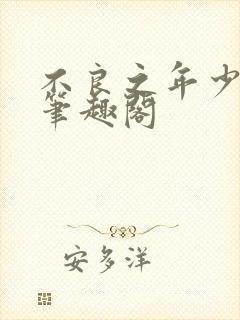 不良之年少
筆趣閣
安多洋